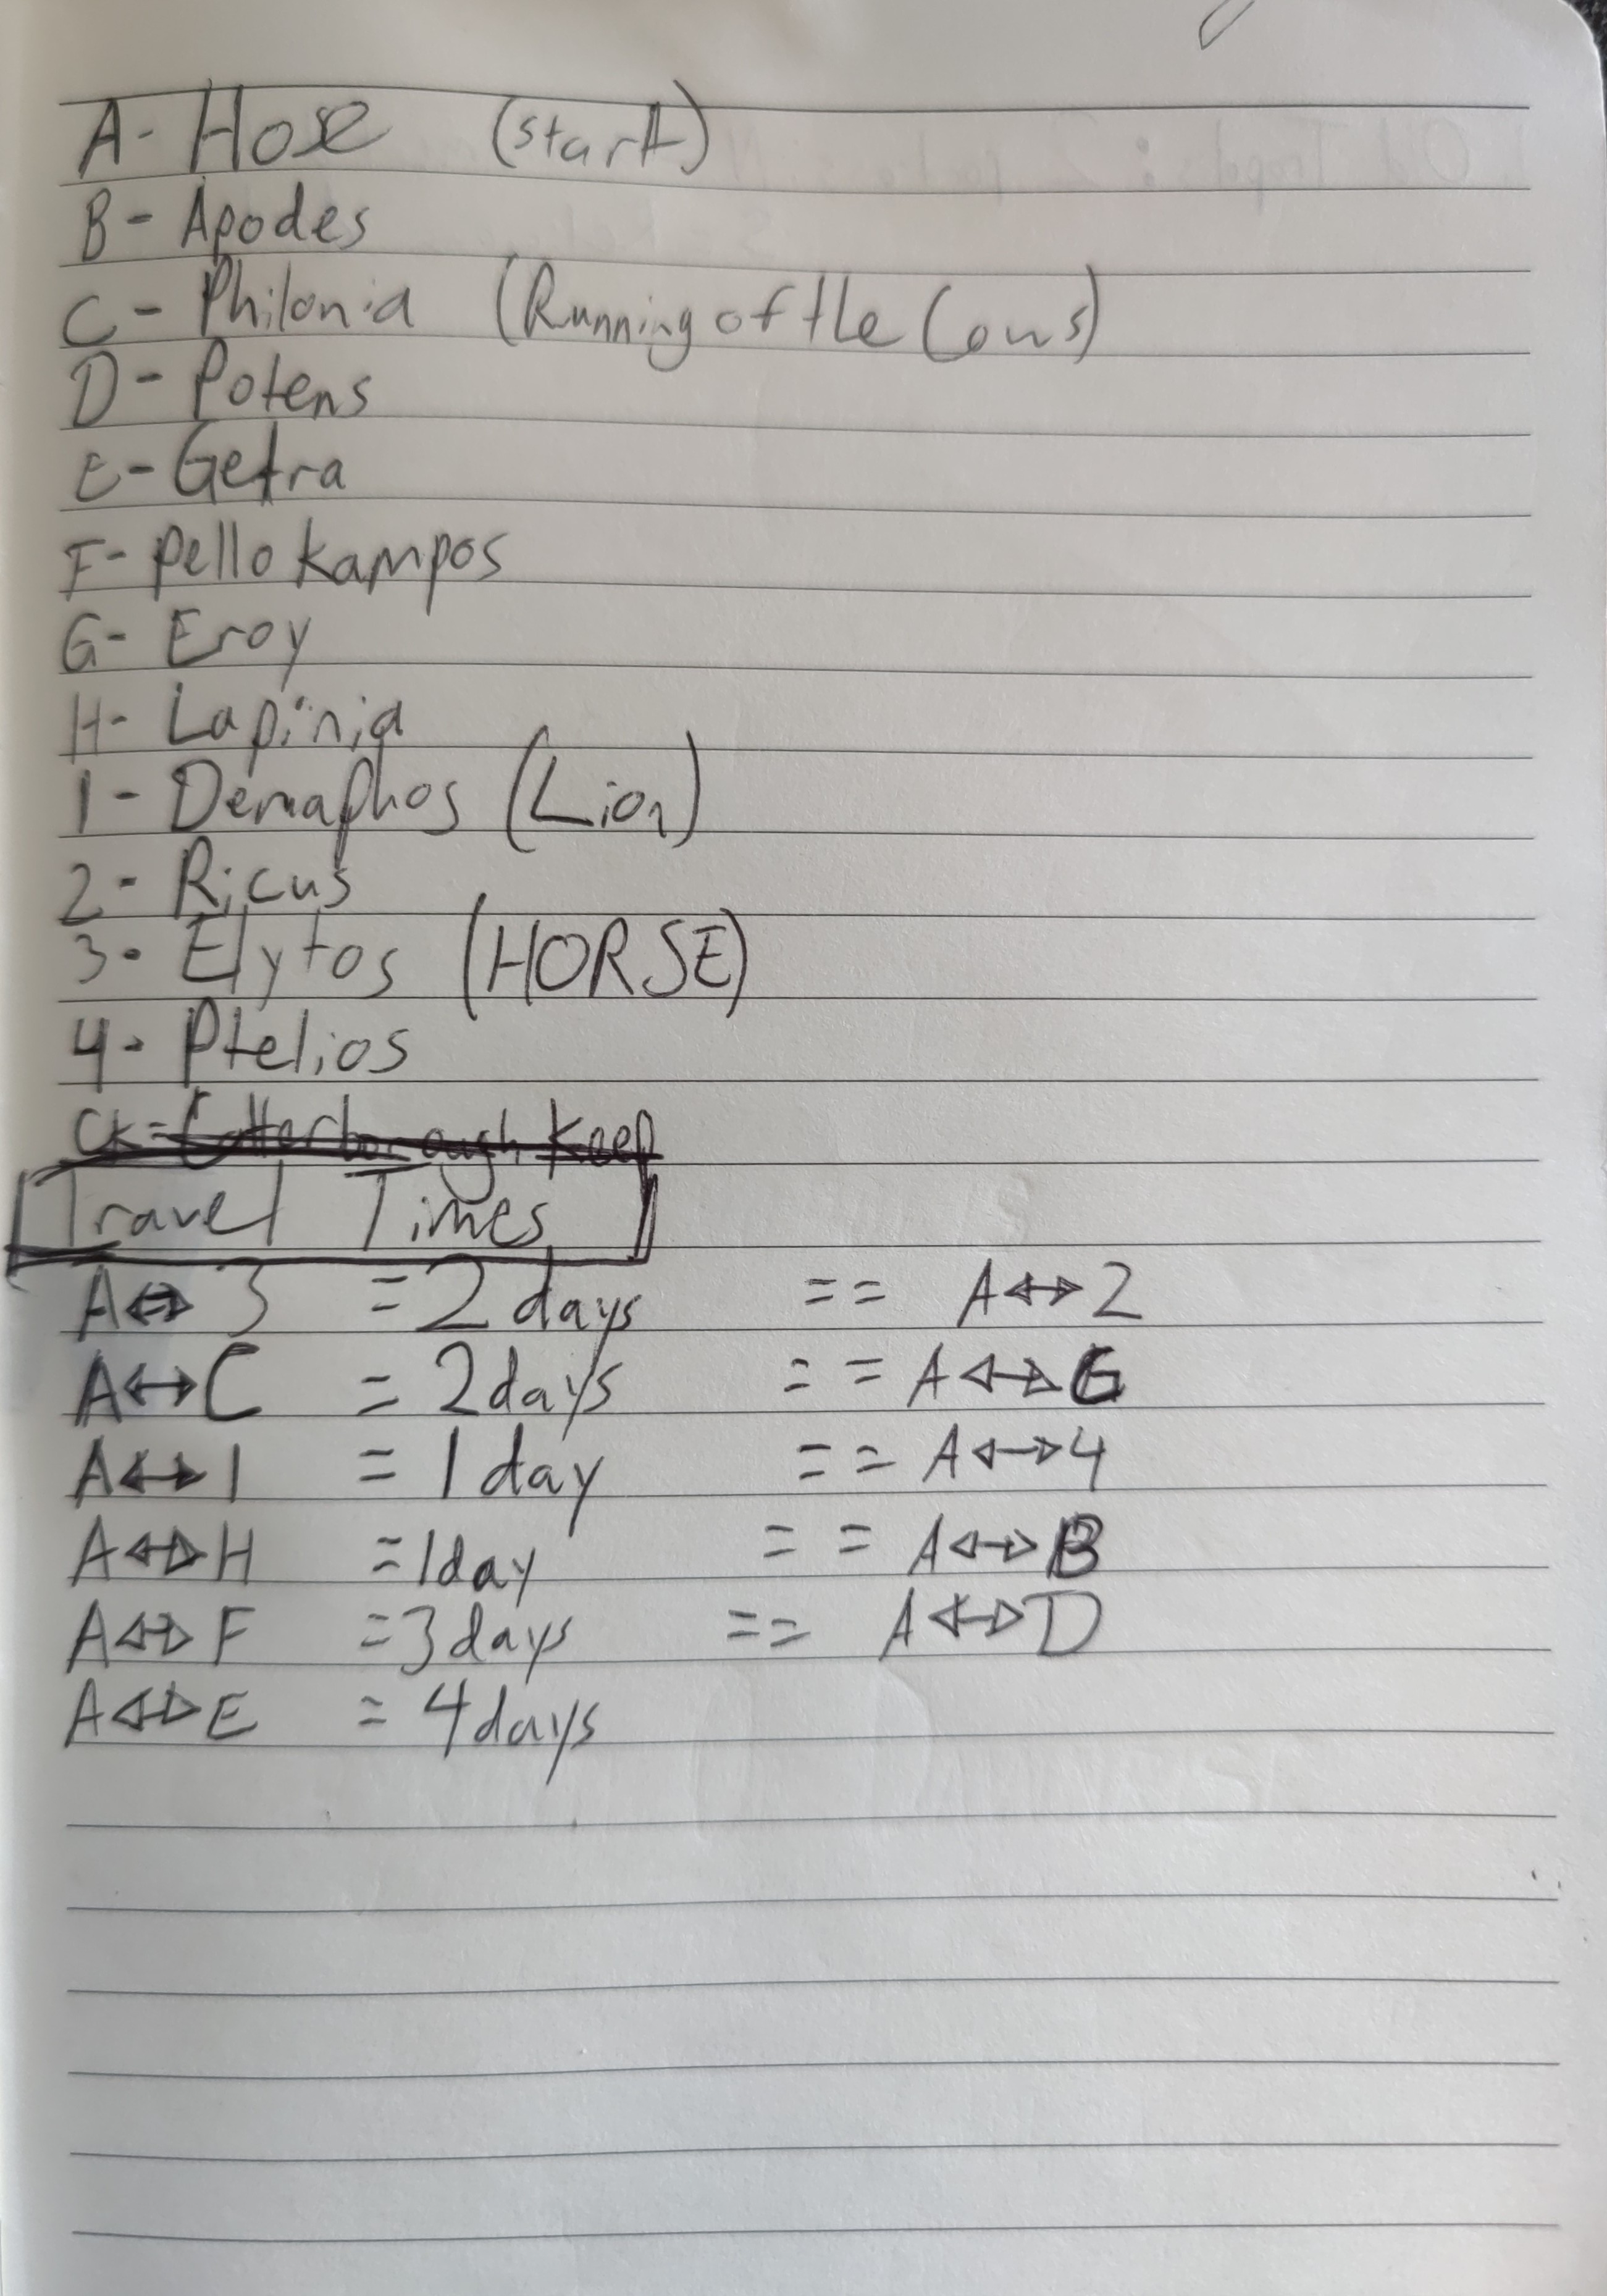 A- Hose (start)
B- Apodes
C- Philonia (Running of the Cows)
D- Potens
E- Getra
F- Pellokampos
G- Eroy
H- Lapinia
1- Demaphos (Lion)
2- Ricus
3- Elytos (HORSE)
4- Ptelios
CK= Cutterborough Keep
Travel Times
A↔3 = 2 days == A↔2
A↔C = 2 days == A↔G
A↔1 = 1 day == A↔4
A↔H = 1 day == A↔B
A↔F = 3 days == A↔D
A↔E = 4 days